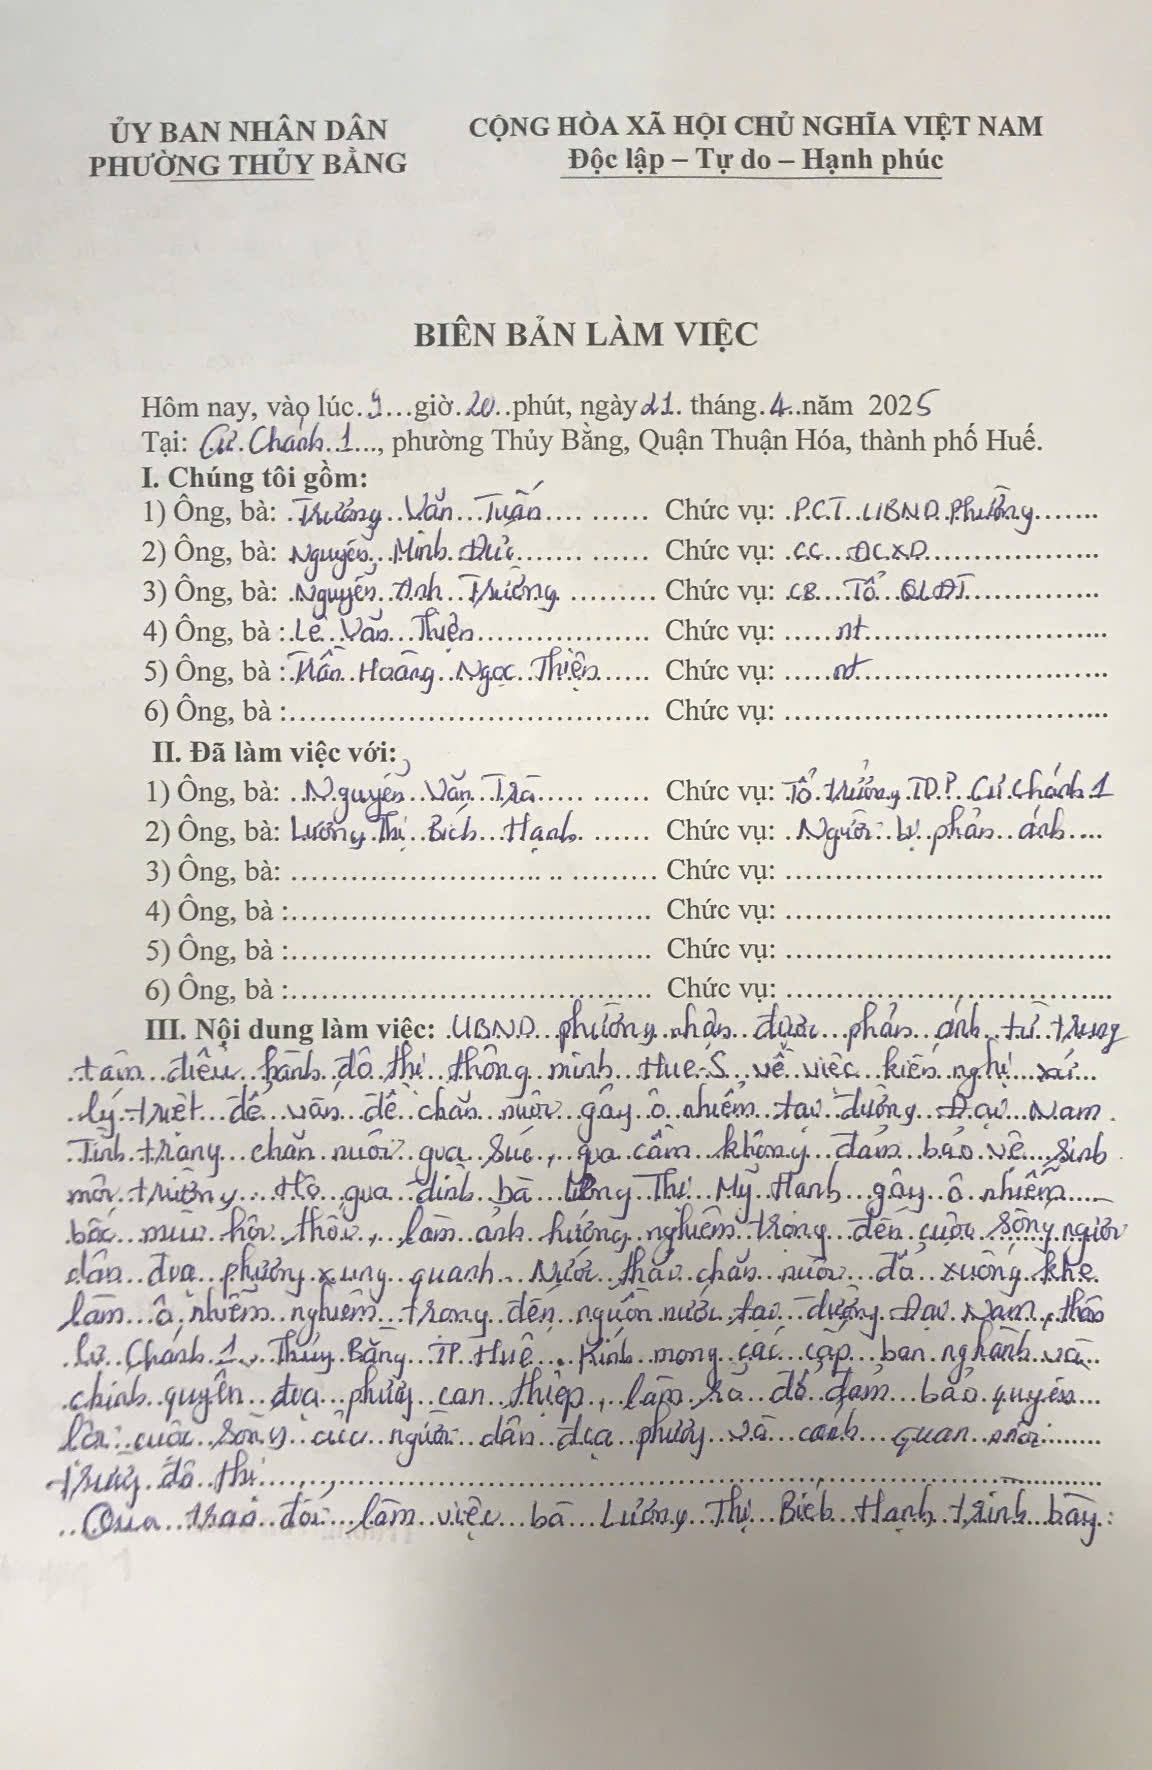 ỦY BAN NHÂN DÂN
PHƯỜNG THỦY BẰNG
CỘNG HÒA XÃ HỘI CHỦ NGHĨA VIỆT NAM
Độc lập – Tự do – Hạnh phúc
BIÊN BẢN LÀM VIỆC
Hôm nay, vào lúc 9 giờ 20 phút, ngày 21 tháng 4 năm 2025
Tại: Cư Chánh 1, phường Thủy Bằng, Quận Thuận Hóa, thành phố Huế.
I. Chúng tôi gồm:
1) Ông, bà: Trương Văn Tuấn Chức vụ: P.C.T UBND Phường
2) Ông, bà: Nguyễn Minh Đức Chức vụ: CC ĐCXD
3) Ông, bà: Nguyễn Anh Trường Chức vụ: CB Tổ QLĐT
4) Ông, bà : Lê Văn Thiện Chức vụ: nt
5) Ông, bà : Trần Hoàng Ngọc Thiện Chức vụ: nt
6) Ông, bà : Chức vụ:
II. Đã làm việc với:
1) Ông, bà: Nguyễn Văn Trà Chức vụ: Tổ trưởng TDP Cư Chánh 1
2) Ông, bà: Lương Thị Bích Hạnh Chức vụ: Người bị phản ánh
3) Ông, bà: Chức vụ:
4) Ông, bà : Chức vụ:
5) Ông, bà : Chức vụ:
6) Ông, bà : Chức vụ:
III. Nội dung làm việc: UBND phường nhận được phản ánh từ trung
tâm điều hành đô thị thông minh Hue-S về việc kiến nghị xử
lý triệt để vấn đề chăn nuôi gây ô nhiễm tại đường Đại Nam.
Tình trạng chăn nuôi gia súc, gia cầm không đảm bảo vệ sinh
môi trường. Hộ gia đình bà Lương Thị Mỹ Hạnh gây ô nhiễm
bốc mùi hôi thối, làm ảnh hưởng nghiêm trọng đến cuộc sống người
dân địa phương xung quanh. Nước thải chăn nuôi đổ xuống khe
làm ô nhiễm nghiêm trọng đến nguồn nước tại đường Đại Nam, thôn
Cư Chánh 1, Thủy Bằng, TP Huế. Kính mong các cấp ban nghành và
chính quyền địa phương can thiệp, làm rõ để đảm bảo quyền
lợi cuộc sống của người dân địa phương và cảnh quan môi
trường đô thị.
Qua trao đổi làm việc bà Lương Thị Bích Hạnh trình bày: